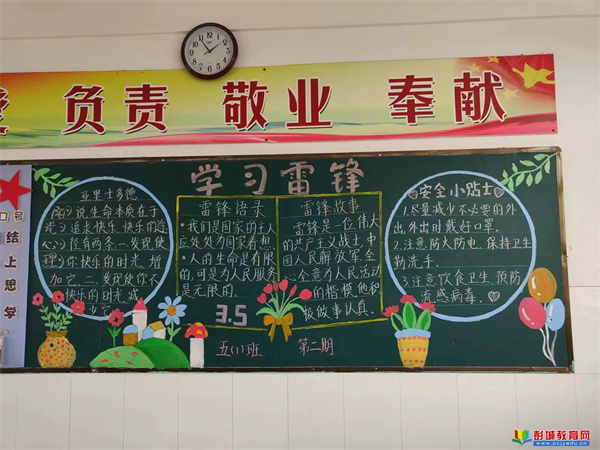 负责 敬业 奉献
学习雷锋
亚里士多德
阳 说生命本质在于
光 追求快乐,快乐的途
心 径有两条:一、发现使
理 你快乐的时光,增
加它;二、发现使你不
快乐的时光,减
少它
雷锋语录
·我们是国家的主人
应处处为国家着想。
·人的生命是有限
的,可是为人民服务
是无限的.
3.5
雷锋故事
雷锋是一位伟大
的共产主义战士,中
国人民解放军全
心全意为人民活动
的楷模,他积
极做事认真.
安全小贴士
1.尽量减少不必要的外
出,外出时戴好口罩.
2.注意防火防电,保持卫生
勤洗手.
3.注意饮食卫生,预防
流感病毒.
五(1)班 第二期
口号
结
上
思
学
彭城教育网
www.pcjyedu.cn